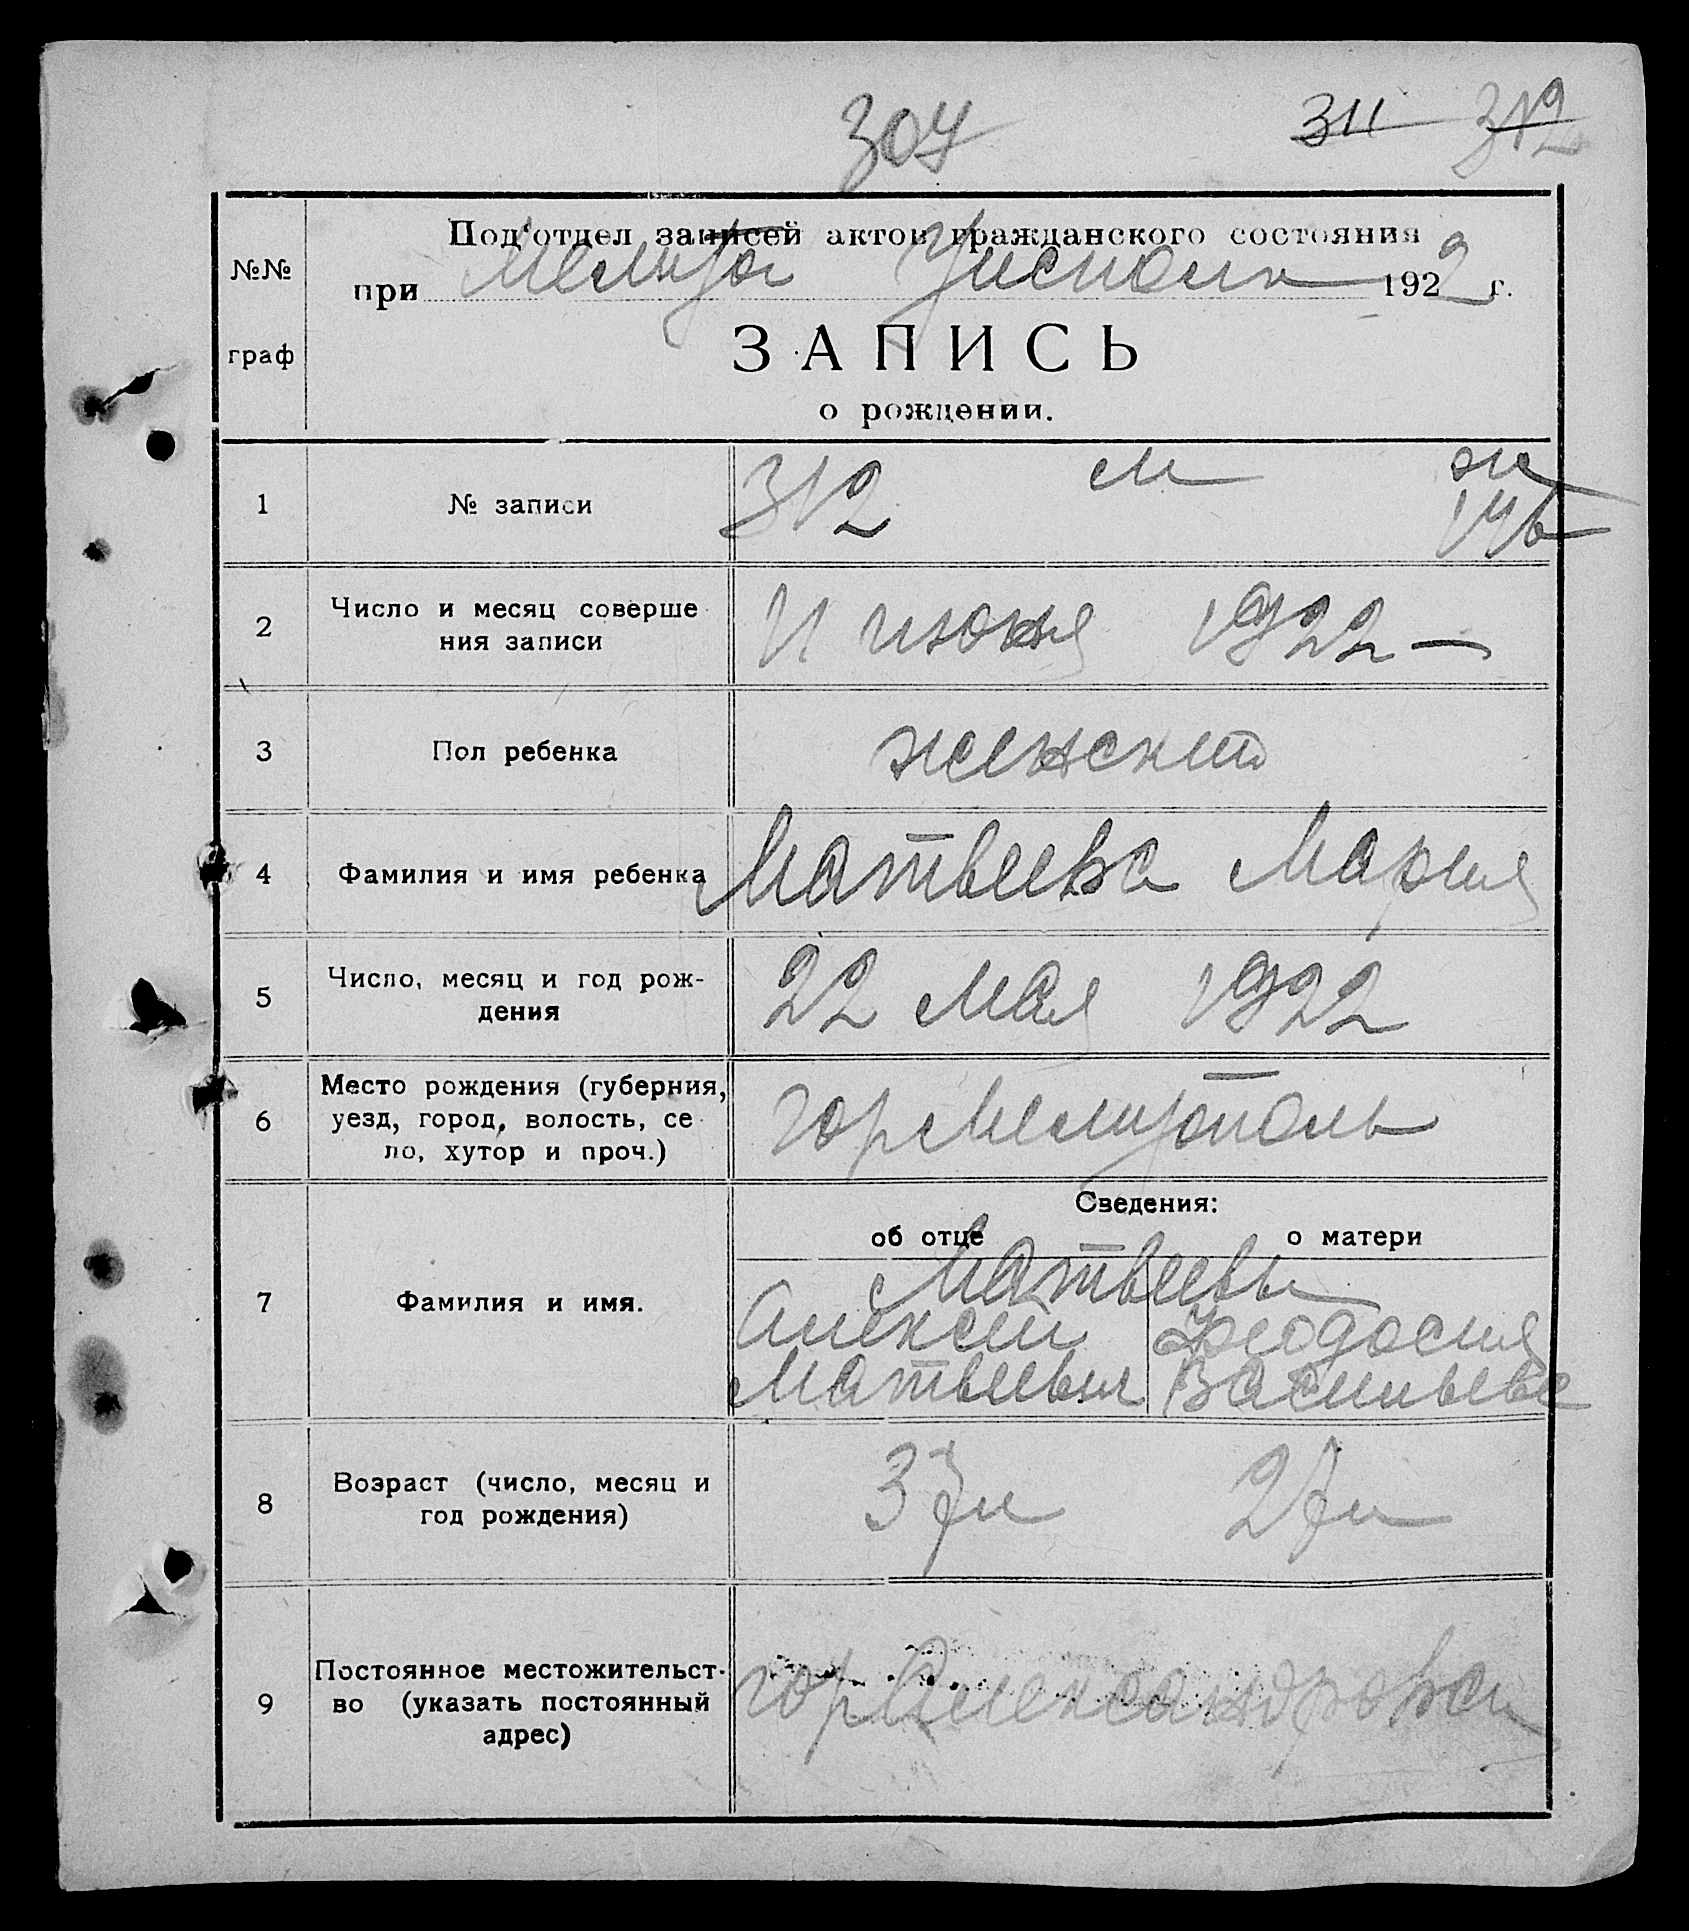 307 311 312
Под'отдел записей актов гражданского состояния
№№
при Мелитоп Уисполк 1922 г.
граф
ЗАПИСЬ
о рождении.
1 № записи 312 м ж
146
2 Число и месяц соверше
ния записи 11 июня 1922
3 Пол ребенка женский
4 Фамилия и имя ребенка Матвеева Мария
5 Число, месяц и год рож-
дения 22 мая 1922
6 Место рождения (губерния,
уезд, город, волость, се
ло, хутор и проч.) гор Мелитополь
Сведения:
об отце о матери
7 Фамилия и имя. Матвеевы
Алексей Феодосия
Матвеевич Васильева
8 Возраст (число, месяц и
год рождения) 37 л 27 л
9 Постоянное местожительст-
во (указать постоянный
адрес) гор Александровск